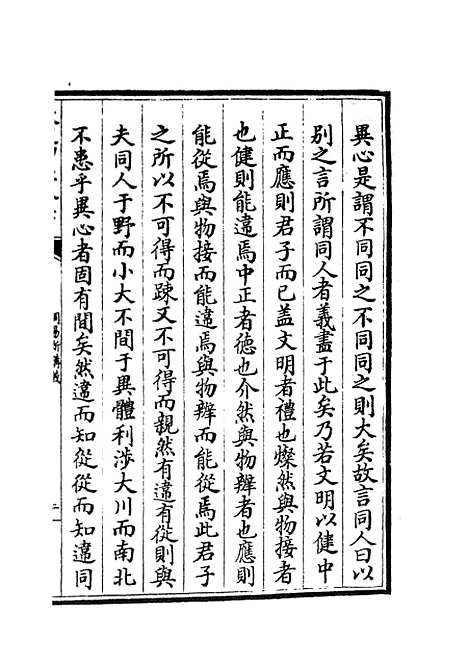 異心是謂不同同之不同同之則大矣故言同人曰以
別之言所謂同人者義盡于此矣乃若文明以健中
正而應則君子而已盖文明者禮也燦然與物接者
也健則能違焉中正者德也介然與物辨者也應則
能從焉與物接而能違焉與物辨而能從焉此君子
之所以不可得而踈又不可得而親然有違有從則與
夫同人于野而小大不間于異體利涉大川而南北
不患乎異心者固有間矣然違而知從從而知違同
周易新講義
二